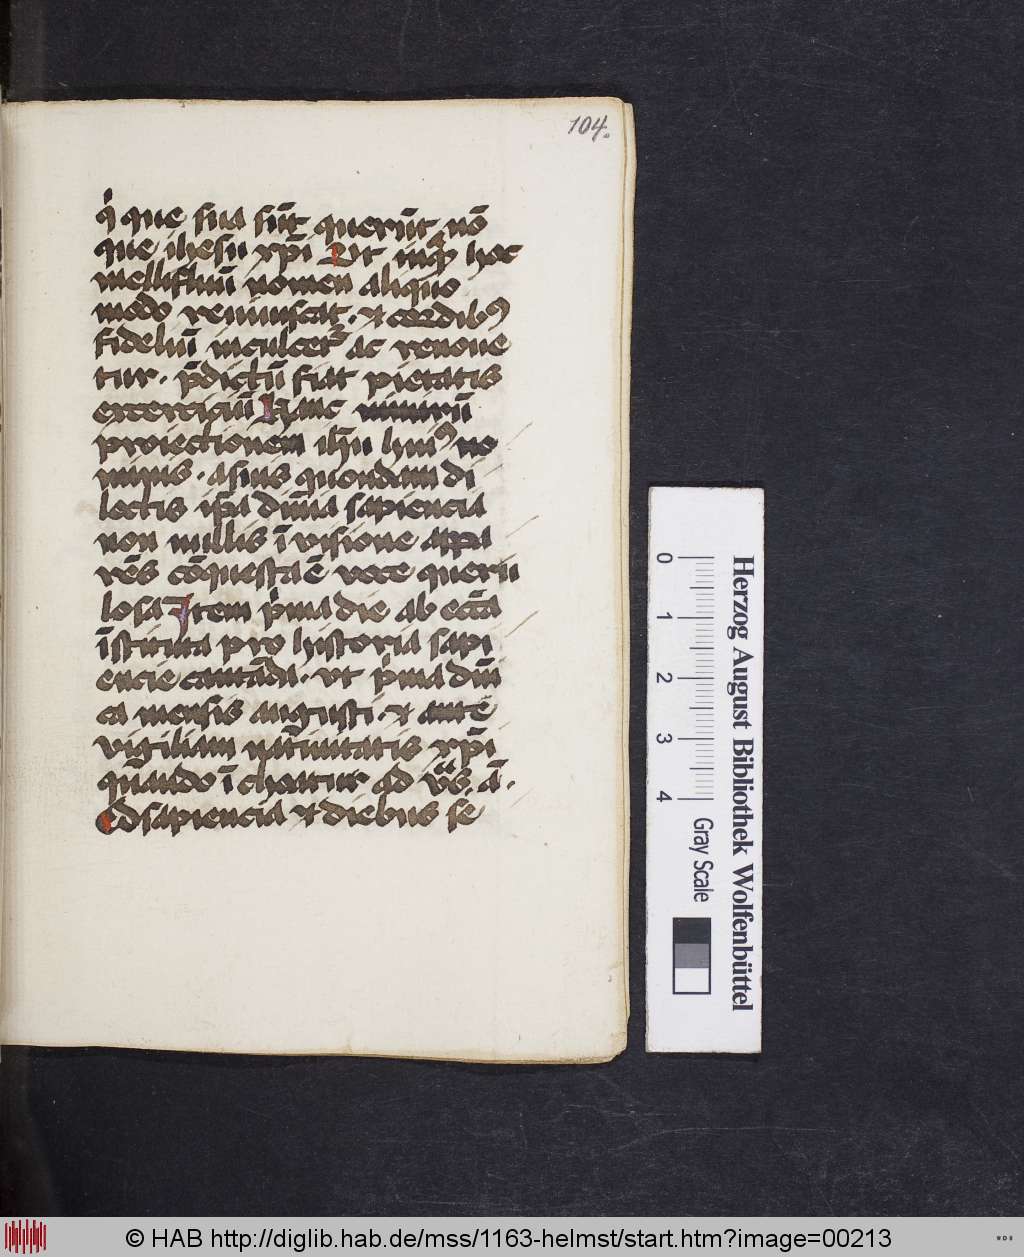 104.
q̄ que sua sūt querūt nō
que ihesu xp̄i Ut inq̄ hoc
mellifluū nomen aliquo
modo reminiscat. et cordibꝰ
fideliū inculcet᷑ ac renoue
tur. p̄dictū fiat pietatis
exercitiū Hinc
proiectionem ih̄u huiꝰ no
minis. a suis quondam di
lectis ip̄a diuīa sapiencia
non nullis ī visione appa
rēs cōquesta ē voce queru
losa Item p̄ma die ab ecc̄a
īstituta pro historia sapi
encie cantādi. ut p̄ma dn̄i
ca mensis augusti. et ante
vigiliam natiuitatis xp̄i
quando ī choatur ad ā.
O sapiencia et diebus se
0 1 2 3 4
Gray Scale
Herzog August Bibliothek Wolfenbüttel
© HAB http://diglib.hab.de/mss/1163-helmst/start.htm?image=00213